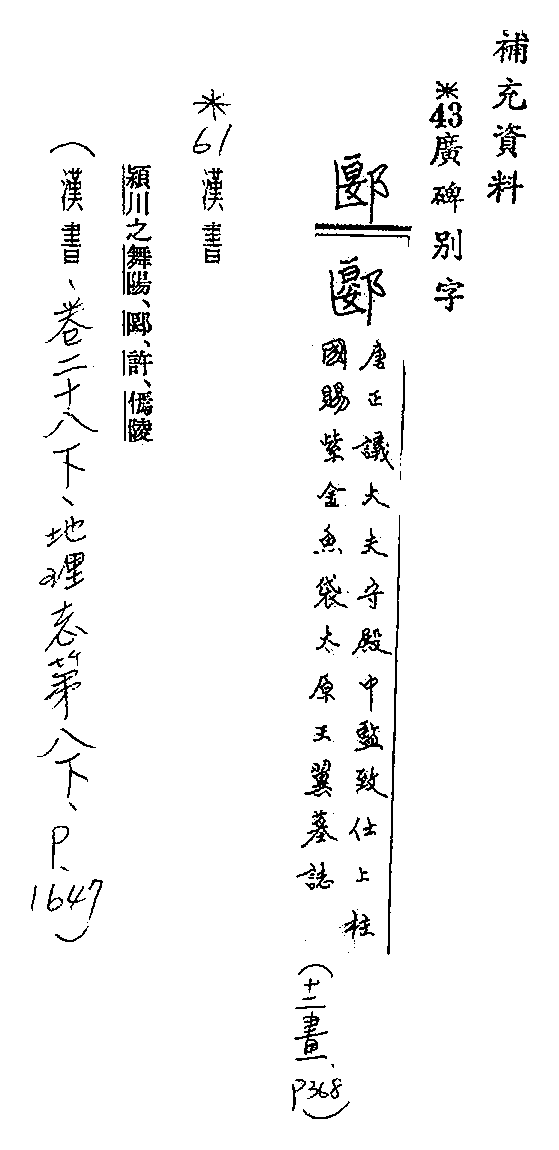 補充資料
*43廣碑別字
郾
郾
唐正議大夫守殿中監致仕上柱
國賜紫金魚袋太原王翼墓誌
(十二畫、P368)
*61漢書
潁川之舞陽、郾、許、傿陵
(漢書、卷二十八下、地理志第八下、P、1647)